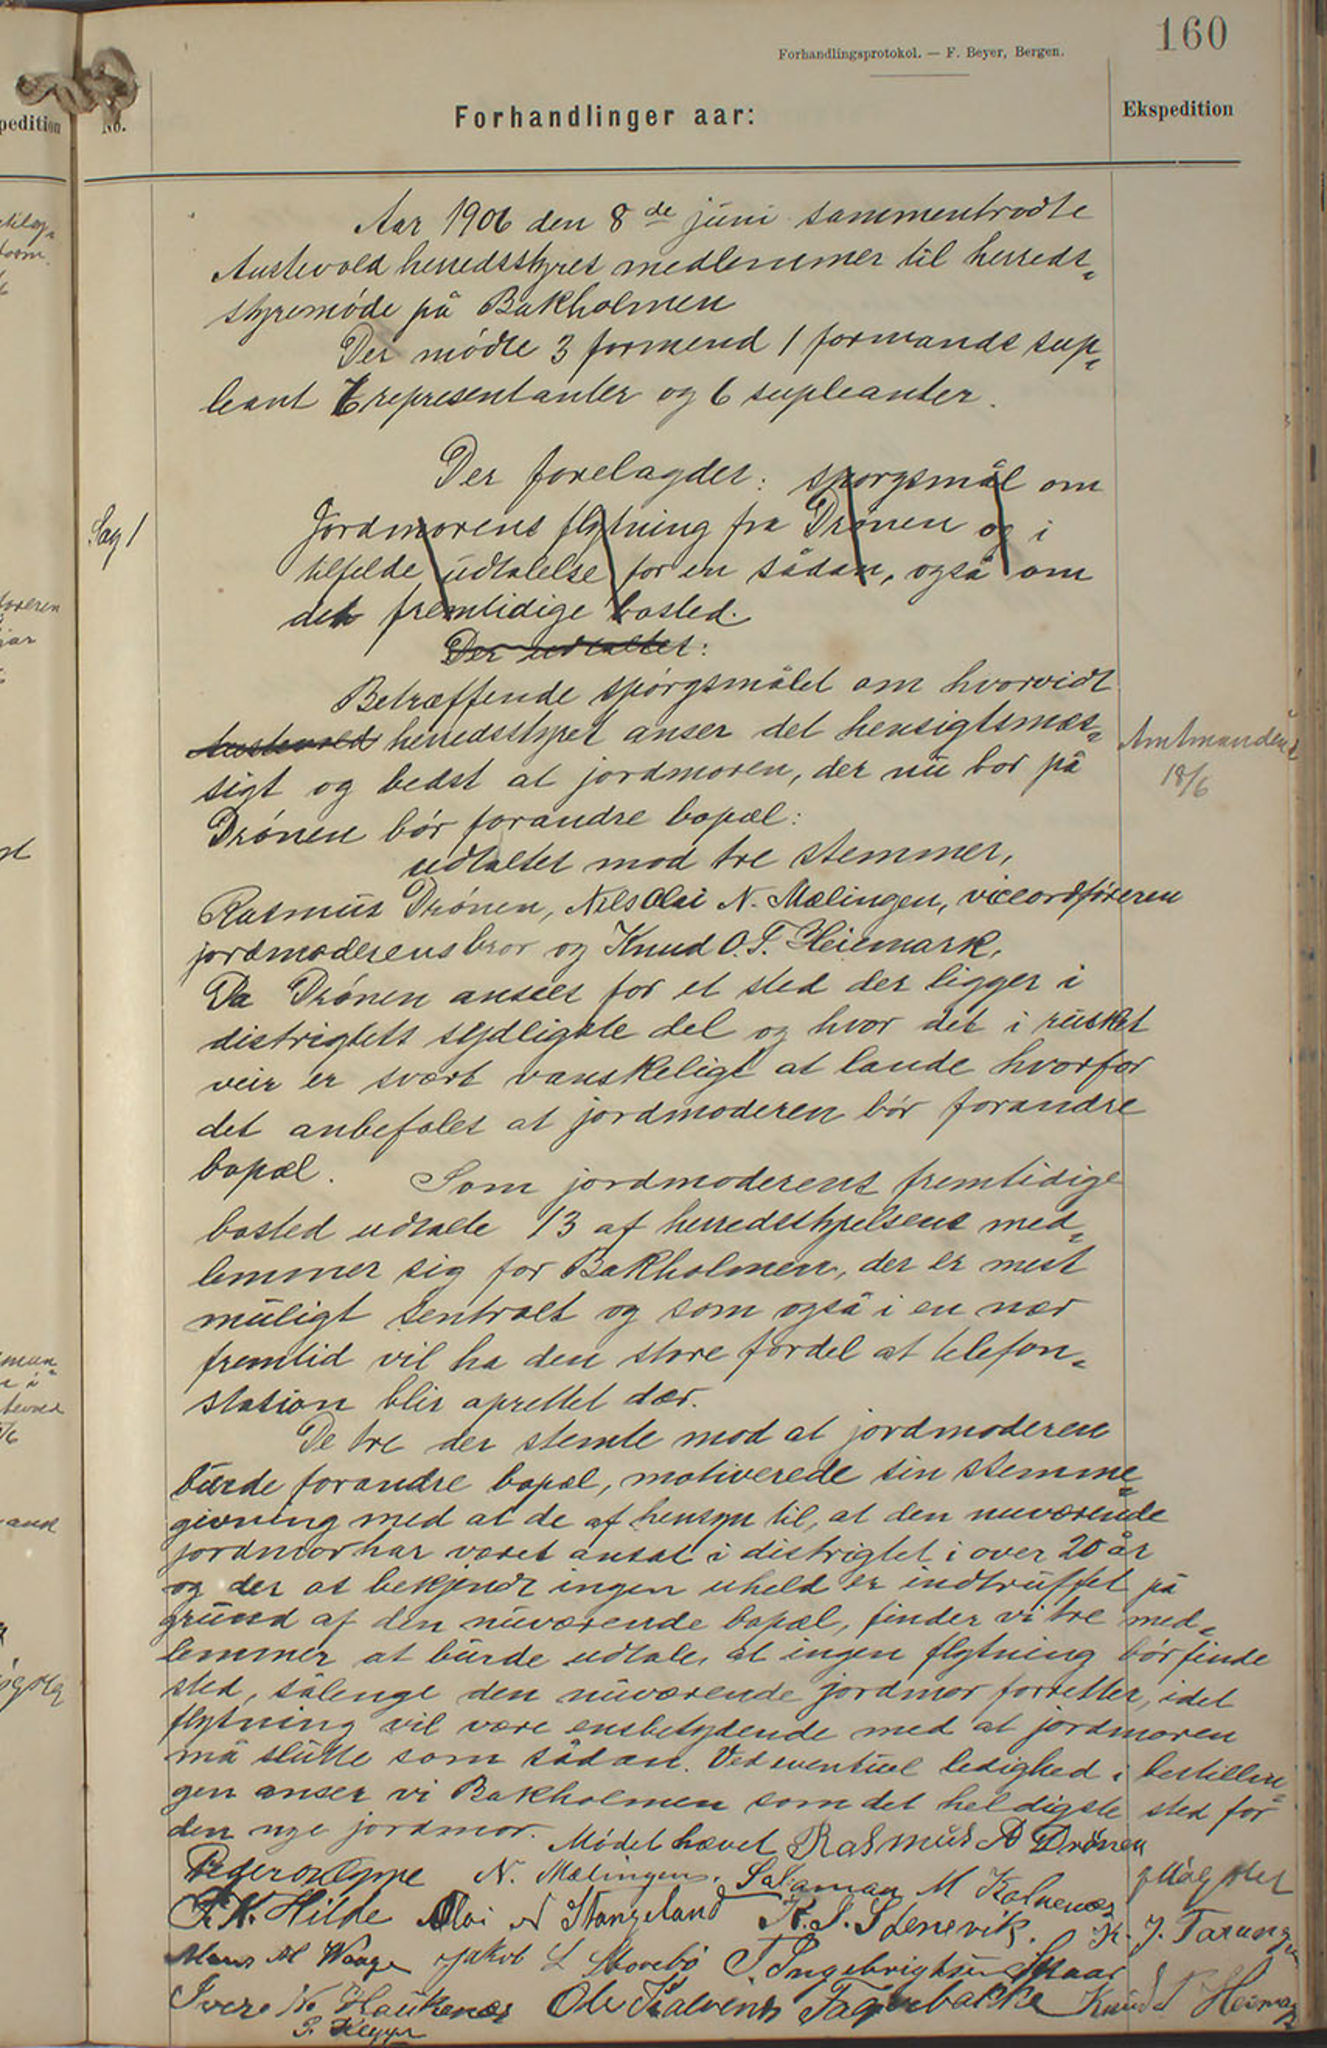 160
Forhandlingsprotokol. — F. Beyer, Bergen.
pedition
No.
Forhandlinger aar:
Ekspedition
Aar 1906 den 8de juni sammentrodte
Austevold herredsstyres medlemmer til herreds-
styremöde på Bakholmen
Der mödte 3 formend 1 formands sup-
leant 6 representanter og 6 supleanter.
Sag 1
Der forelagdes: spörgsmål om
Jordmorens flytning fra Drönen og i
tilfelde udtalelse for en sådan, også om
det fremtidige bosted.
Der udtaltes:
Betræffende spörgsmålet om hvorvidt
Austevold herredsstyret anser det hensigtsmæs-
sigt og bedst at jordmoren, der nu bor på
Drönen bör forandre bopæl:
Amtmanden
18/6
udtaltes mod tre stemmer,
Rasmus Drönen, Nils Olai N. Mælingen, viceordföreren
jordmoderens bror og Knud O.T. Heiemark.
Da Drönen ansees for et sted der ligger i
distrigtets sydligste del og hvor det i rusket
veir er svært vanskeligt at lande hvorfor
det anbefales at jordmoderen bör forandre
bopæl. Som jordmoderens fremtidige
bosted udtalte 13 af herredsstyrelsens med-
lemmer sig for Bakholmen, der er mest
muligt sentralt og som også i en nær
fremtid vil ha den store fordel at telefon-
station blir oprettet dær.
De tre der stemte mod at jordmoderen
burde forandre bopæl, motiverede sin stemme-
givning med at de af hensyn til, at den nuværende
jordmor har været ansat i distrigtet i over 20 år
og der os bekjendt ingen uheld er indtruffet på
grund af den nuværende bopæl, finder vi tre med-
lemmer at burde udtale, at ingen flytning bör finde
sted, sålenge den nuværende jordmor forretter, idet
flytning vil være ensbetydende med at jordmoren
må slutte som sådan. Ved eventuel ledighed i bestillin-
gen anser vi Bakholmen som det heldigste sted for
den nye jordmor. Mödet hævet Rasmus A Drönen
N. Mælingen. Salaman M Kalvenæs
Hilde Olai N Stangeland K. J. Stenevik. K. J. Tarang
Mons M Waage Jakob L Storebö T. Ingebrigtsen
Iver N. Haukenæs Ole Kalvenes Fagerbakke Knud T Heimark